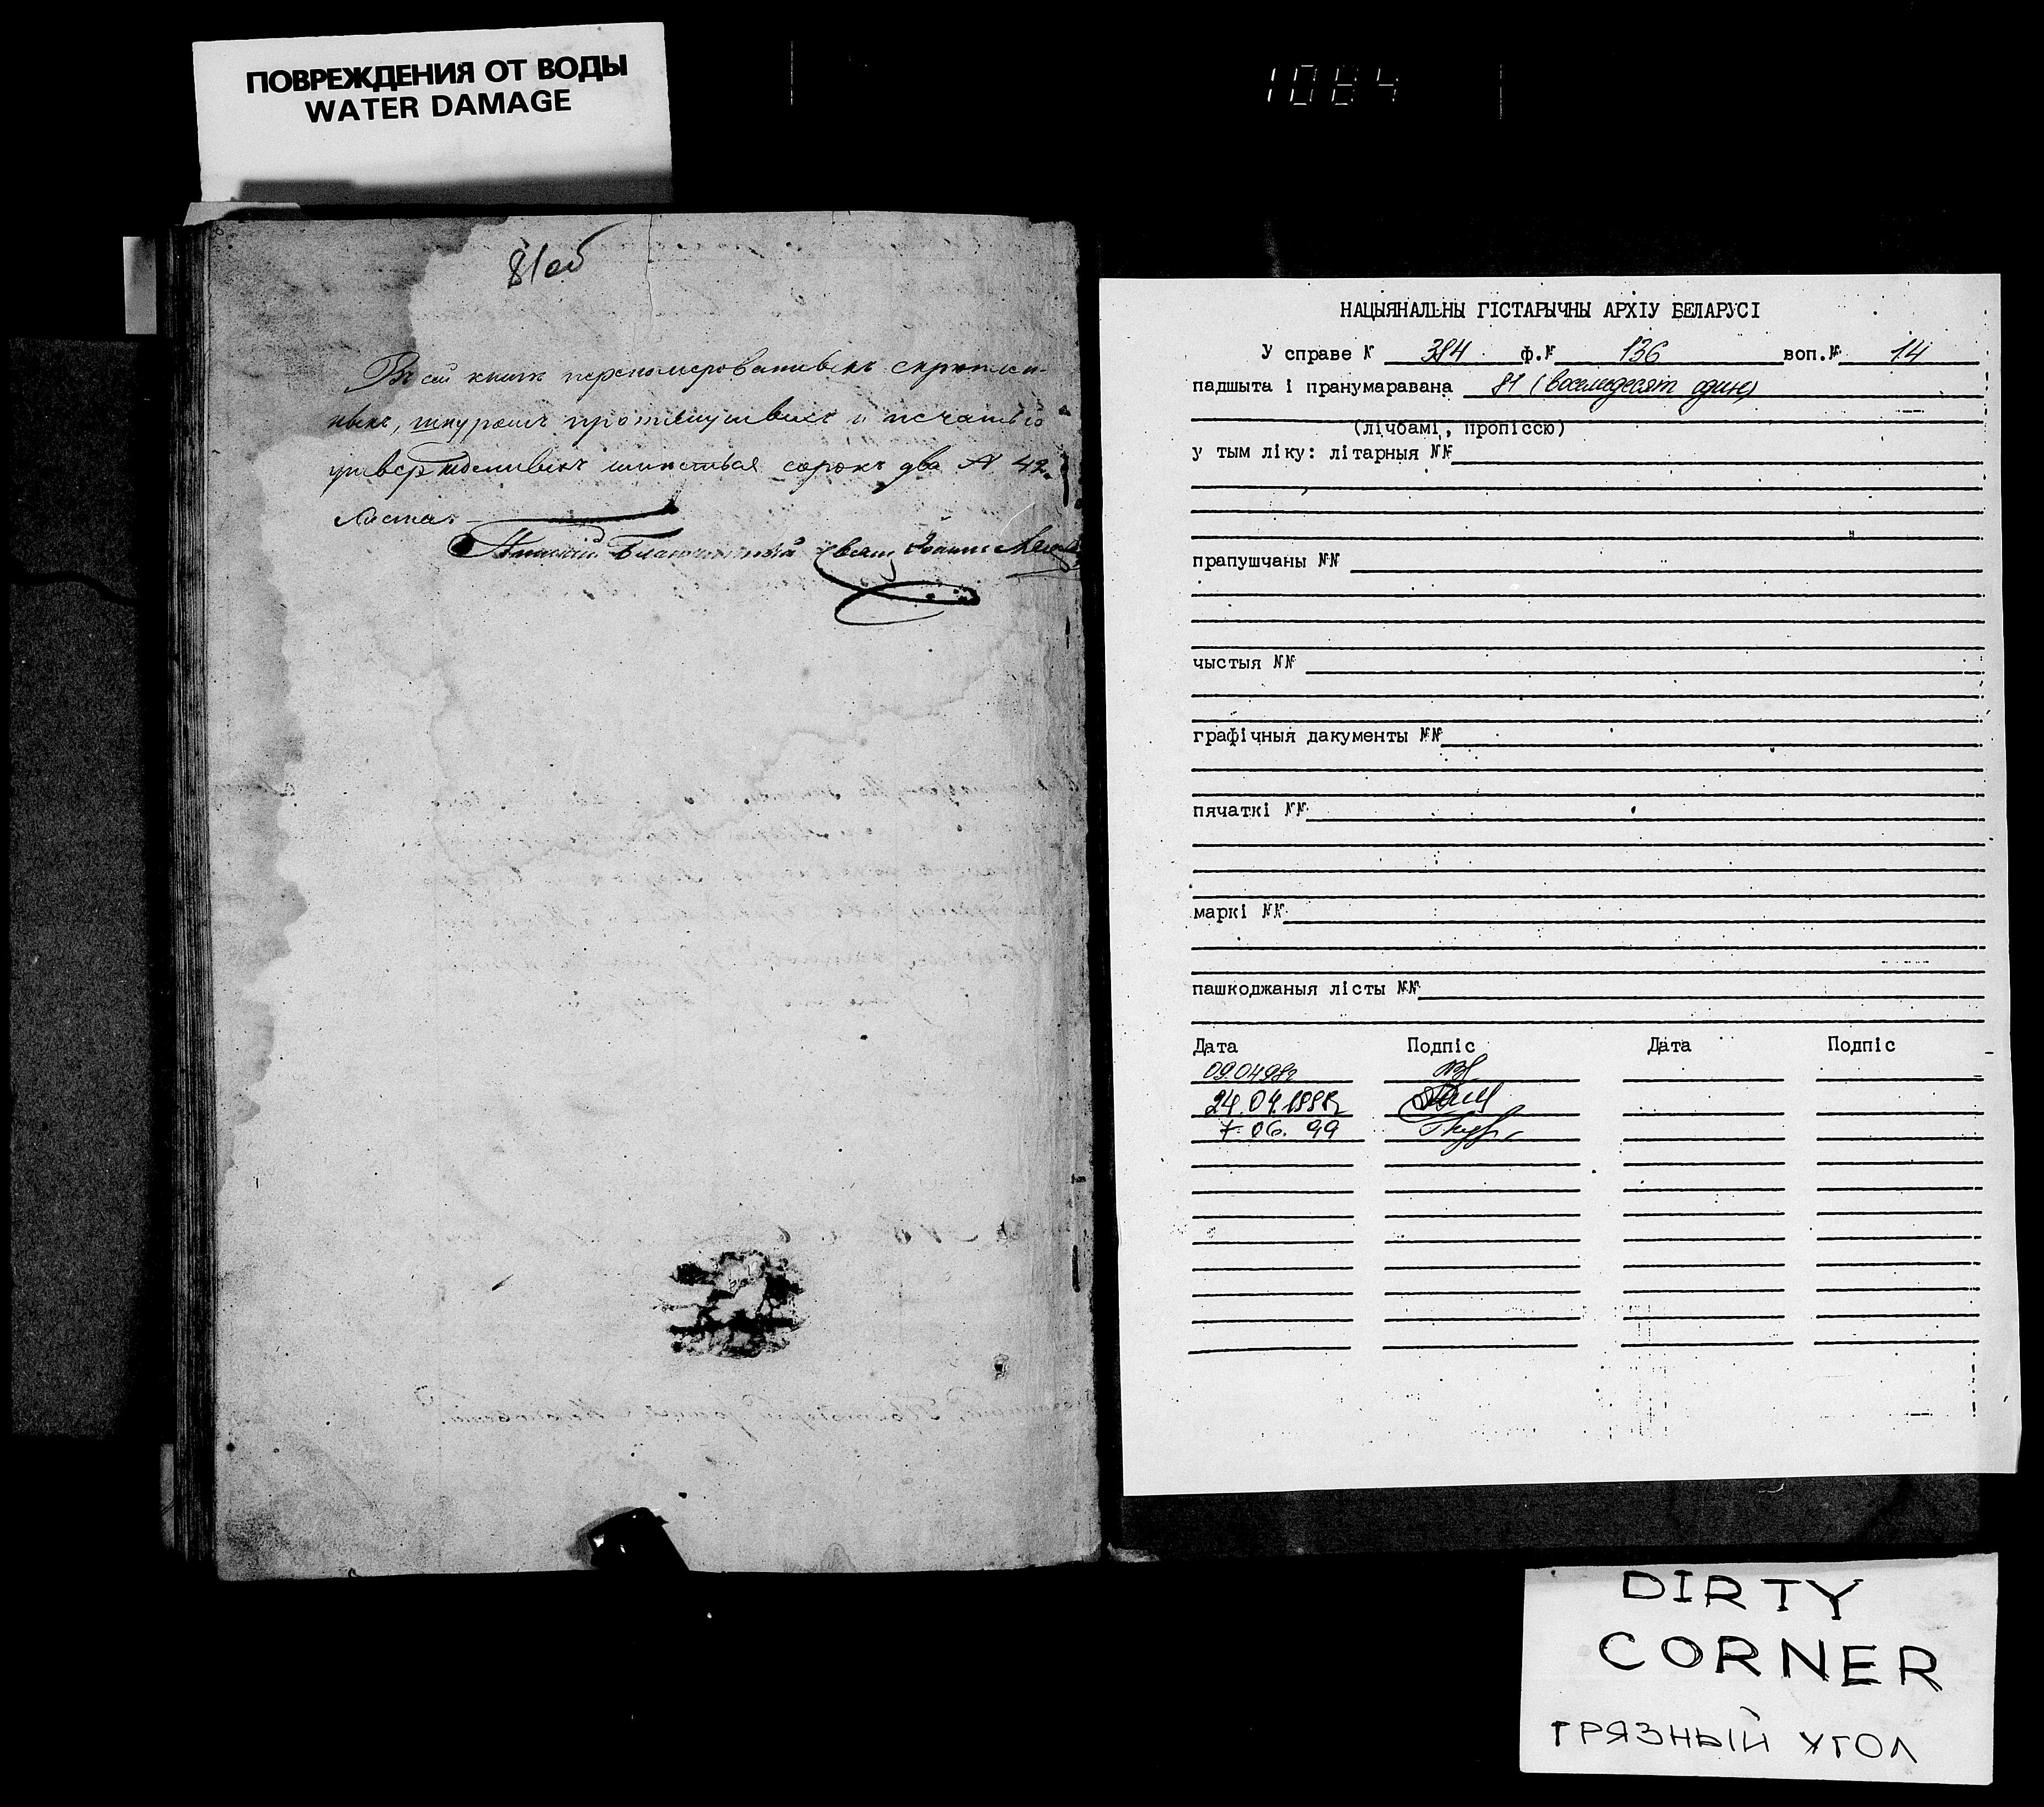 ПОВРЕЖДЕНИЯ ОТ ВОДЫ
WATER DAMAGE
1084
81об
Въ сей книгѣ перенумерованныхъ скрѣплен-
ныхъ, шнуромъ протянутыхъ и печатью
утвержденныхъ сорокъ два № 42
листа.
Благочинный Іоаннъ
НАЦЫЯНАЛЬНЫ ГІСТАРЫЧНЫ АРХІУ БЕЛАРУСІ
У справе № 384 ф.№ 136 воп.№ 14
падшыта і пранумаравана 81 (восемьдесят один)
(лічбамі, пропіссю)
у тым ліку: літарныя №№
прапушчаны №№
чыстыя №№
графічныя дакументы №№
пячаткі №№
маркі №№
пашкоджаныя лісты №№
Дата Подпіс Дата Подпіс
09.04.98г
24.04.1998г
7.06.99
DIRTY
CORNER
ГРЯЗНЫЙ УГОЛ